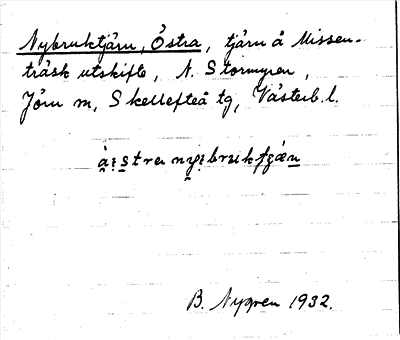 Nybruktjärn, Östra, tjärn å Missen-
träsk utskifte, N. Stormyren,
Jörn sn, Skellefteå tg, Västerb. l.
B. Nygren 1932.